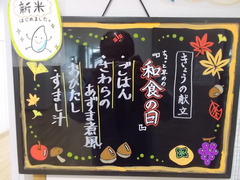 新米
はじめました
きょうの献立
ちょっと早めの
『和食の日』
・ごはん
・さわらの
あずま煮風
・おひたし
・すまし汁